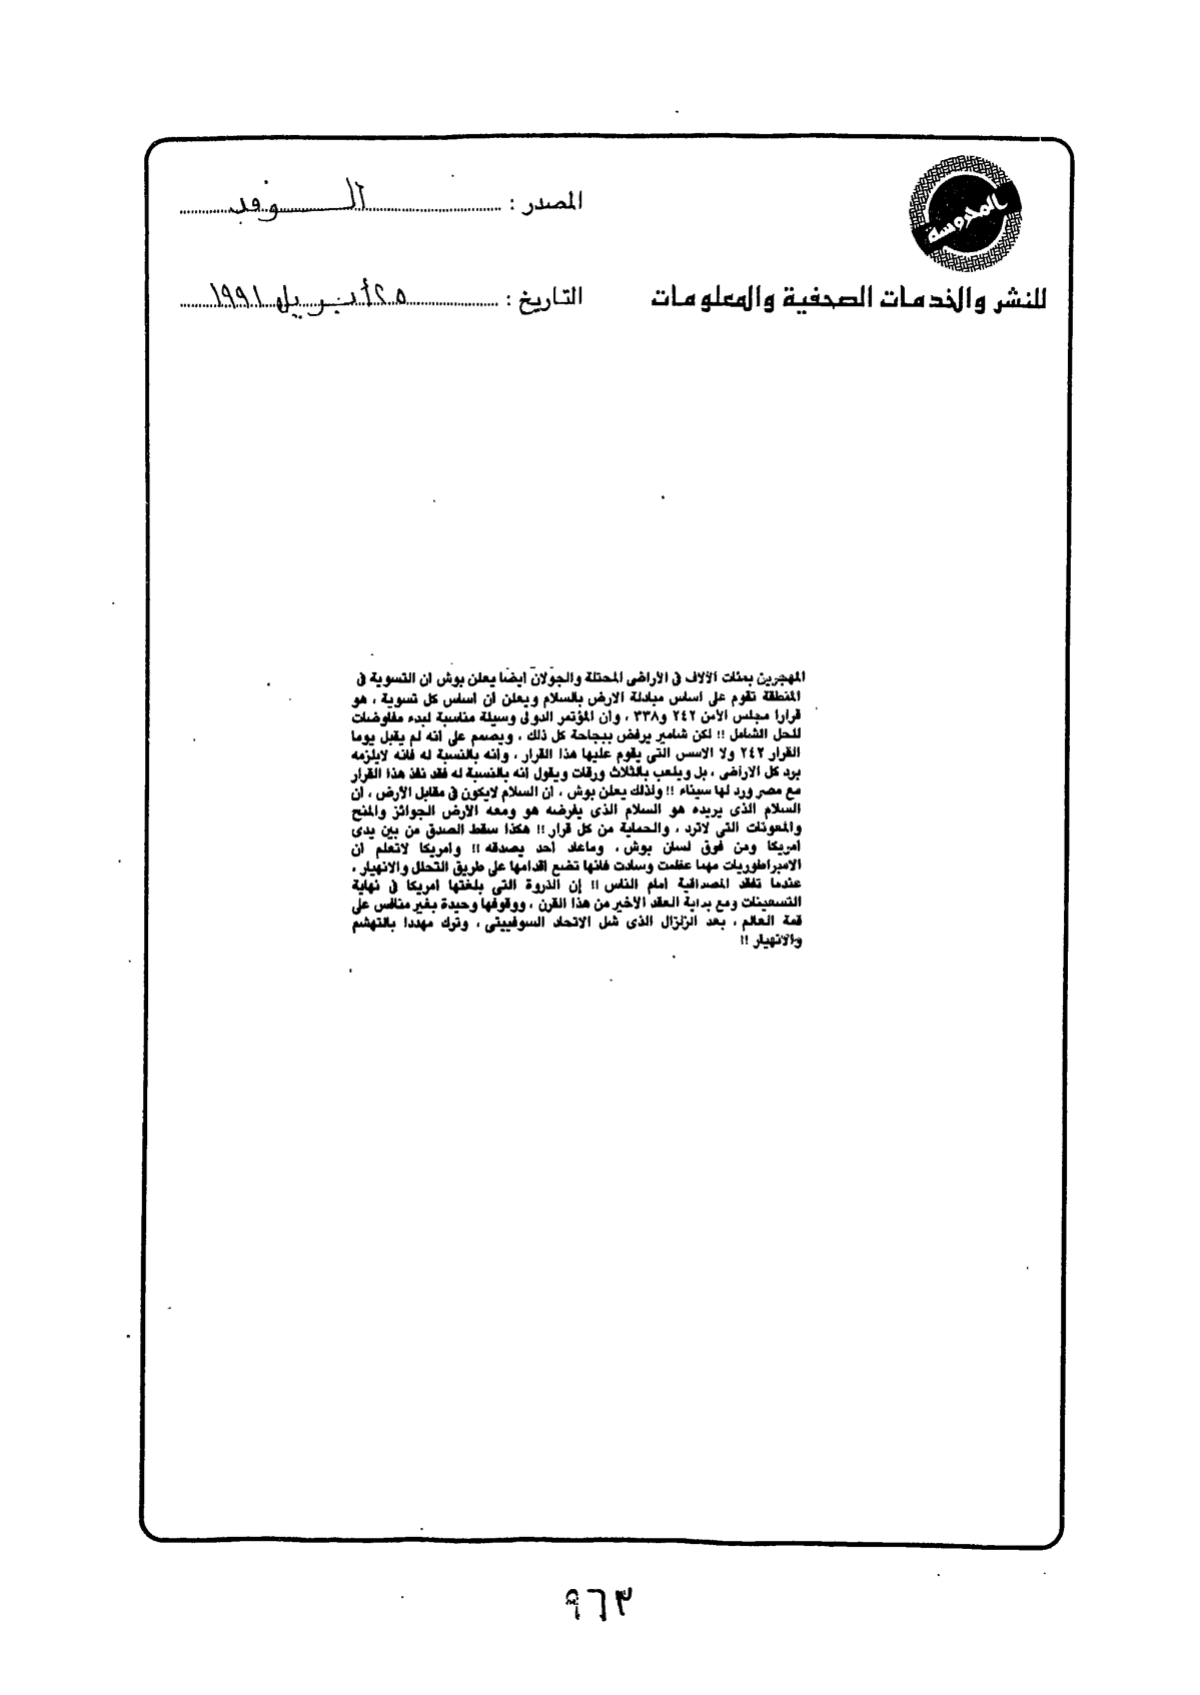 المحروسة
للنشر والخدمات الصحفية والمعلومات
المصدر : الوفد
التاريخ : ٢٥ أبريل ١٩٩١
المهجرين بمئات الآلاف فى الأراضى المحتلة والجولان أيضا يعلن بوش ان التسوية فى
المنطقة تقوم على أساس مبادلة الارض بالسلام ويعلن أن أساس كل تسوية ، هو
قرارا مجلس الأمن ٢٤٢ و٣٣٨ ، وأن المؤتمر الدولى وسيلة مناسبة لبدء مفاوضات
للحل الشامل !! لكن شامير يرفض ببجاحة كل ذلك ، ويصمم على انه لم يقبل يوما
القرار ٢٤٢ ولا الاسس التى يقوم عليها هذا القرار ، وانه بالنسبة له فانه لايلزمه
برد كل الأراضى ، بل ويلعب بالثلاث ورقات ويقول أنه بالنسبة له فقد نفذ هذا القرار
مع مصر ورد لها سيناء !! ولذلك يعلن بوش ، ان السلام لايكون فى مقابل الأرض ، ان
السلام الذى يريده هو السلام الذى يفرضه هو ومعه الارض الجوائز والمنح
والمعونات التى لاترد ، والحماية من كل قرار !! هكذا سقط الصدق من بين يدى
امريكا ومن فوق لسان بوش ، وماعاد أحد يصدقه !! وأمريكا لاتعلم ان
الامبراطوريات مهما عظمت وسادت فانها تضع اقدامها على طريق التحلل والانهيار ،
عندما تفقد المصداقية أمام الناس !! إن الذروة التى بلغتها امريكا فى نهاية
التسعينات ومع بداية العقد الأخير من هذا القرن ، ووقوفها وحيدة بغير منافس على
قمة العالم ، بعد الزلزال الذى شل الاتحاد السوفييتى ، وترك مهددا بالتهشم
والانهيار !!
٩٦٣